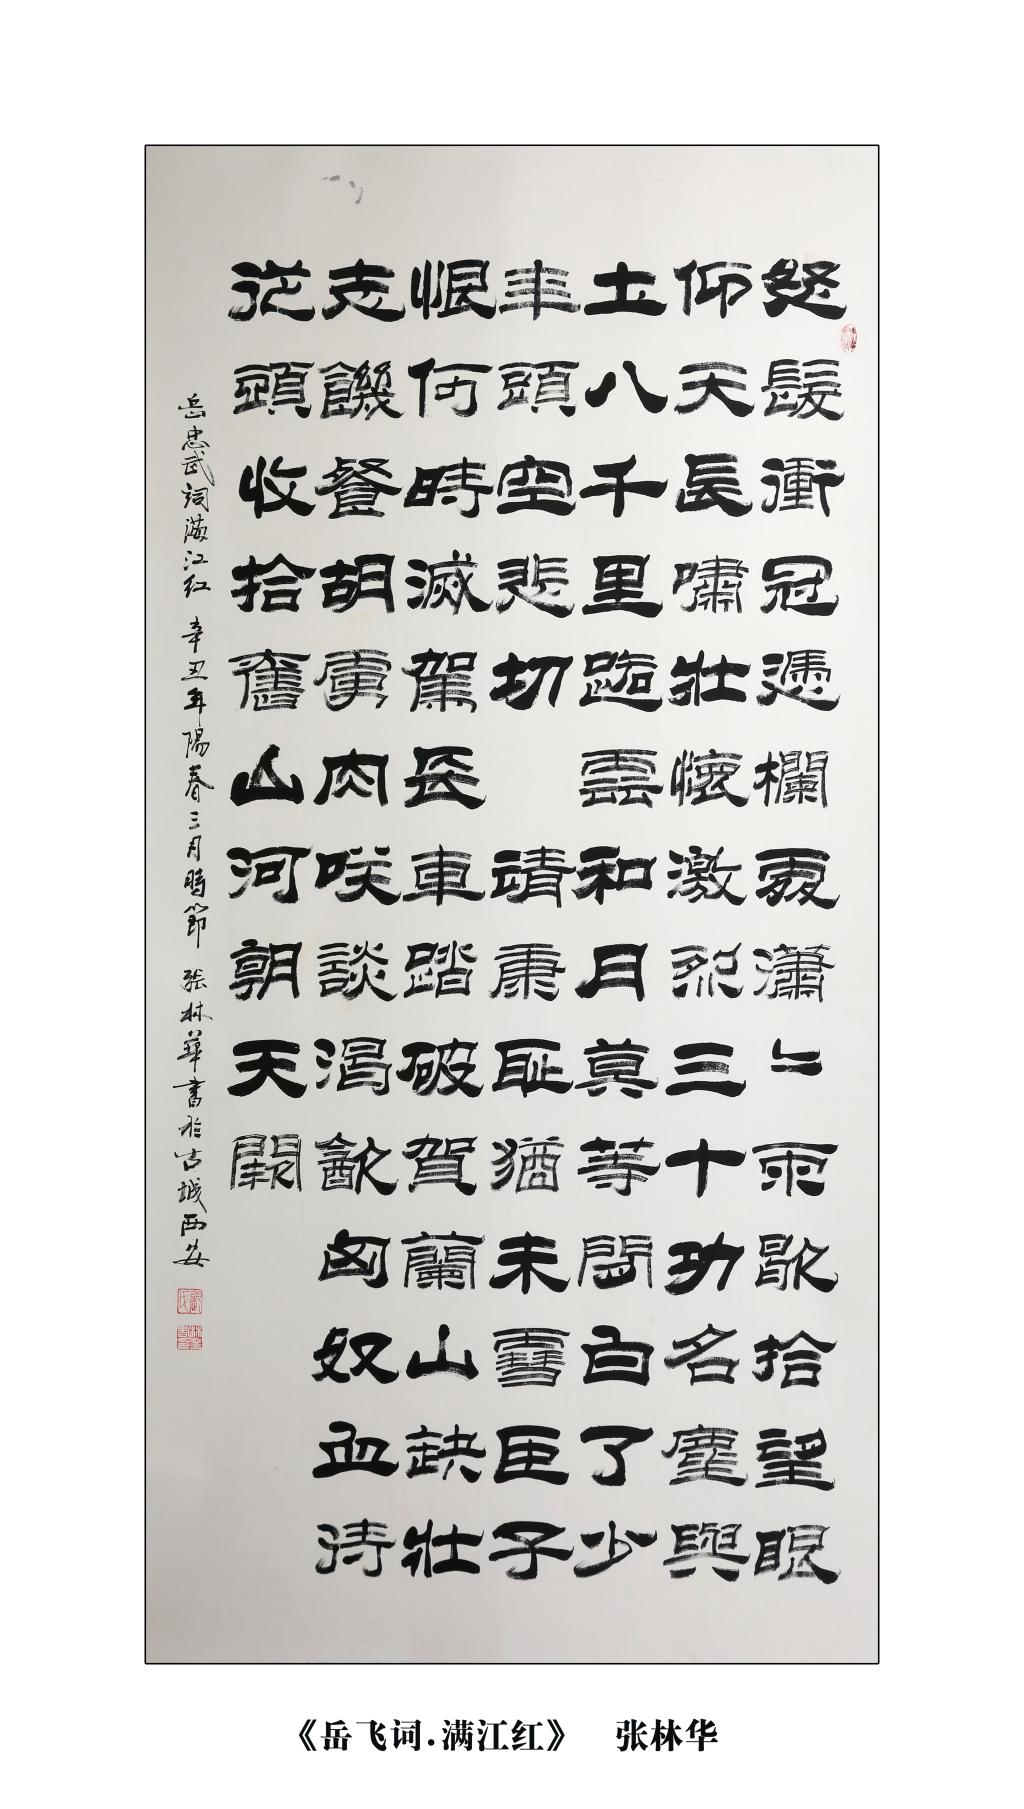 怒髮衝冠憑欄處瀟〻雨歇抬望眼
仰天長嘯壯懷激烈三十功名塵與
土八千里路雲和月莫等閒白了少
年頭空悲切 靖康恥猶未雪臣子
恨何時滅駕長車踏破賀蘭山缺壯
志饑餐胡虜肉笑談渴飲匈奴血待
從頭收拾舊山河朝天闕
岳忠武詞满江红 辛丑年陽春三月時節 張林華書於古城西安
《岳飞词.满江红》 张林华